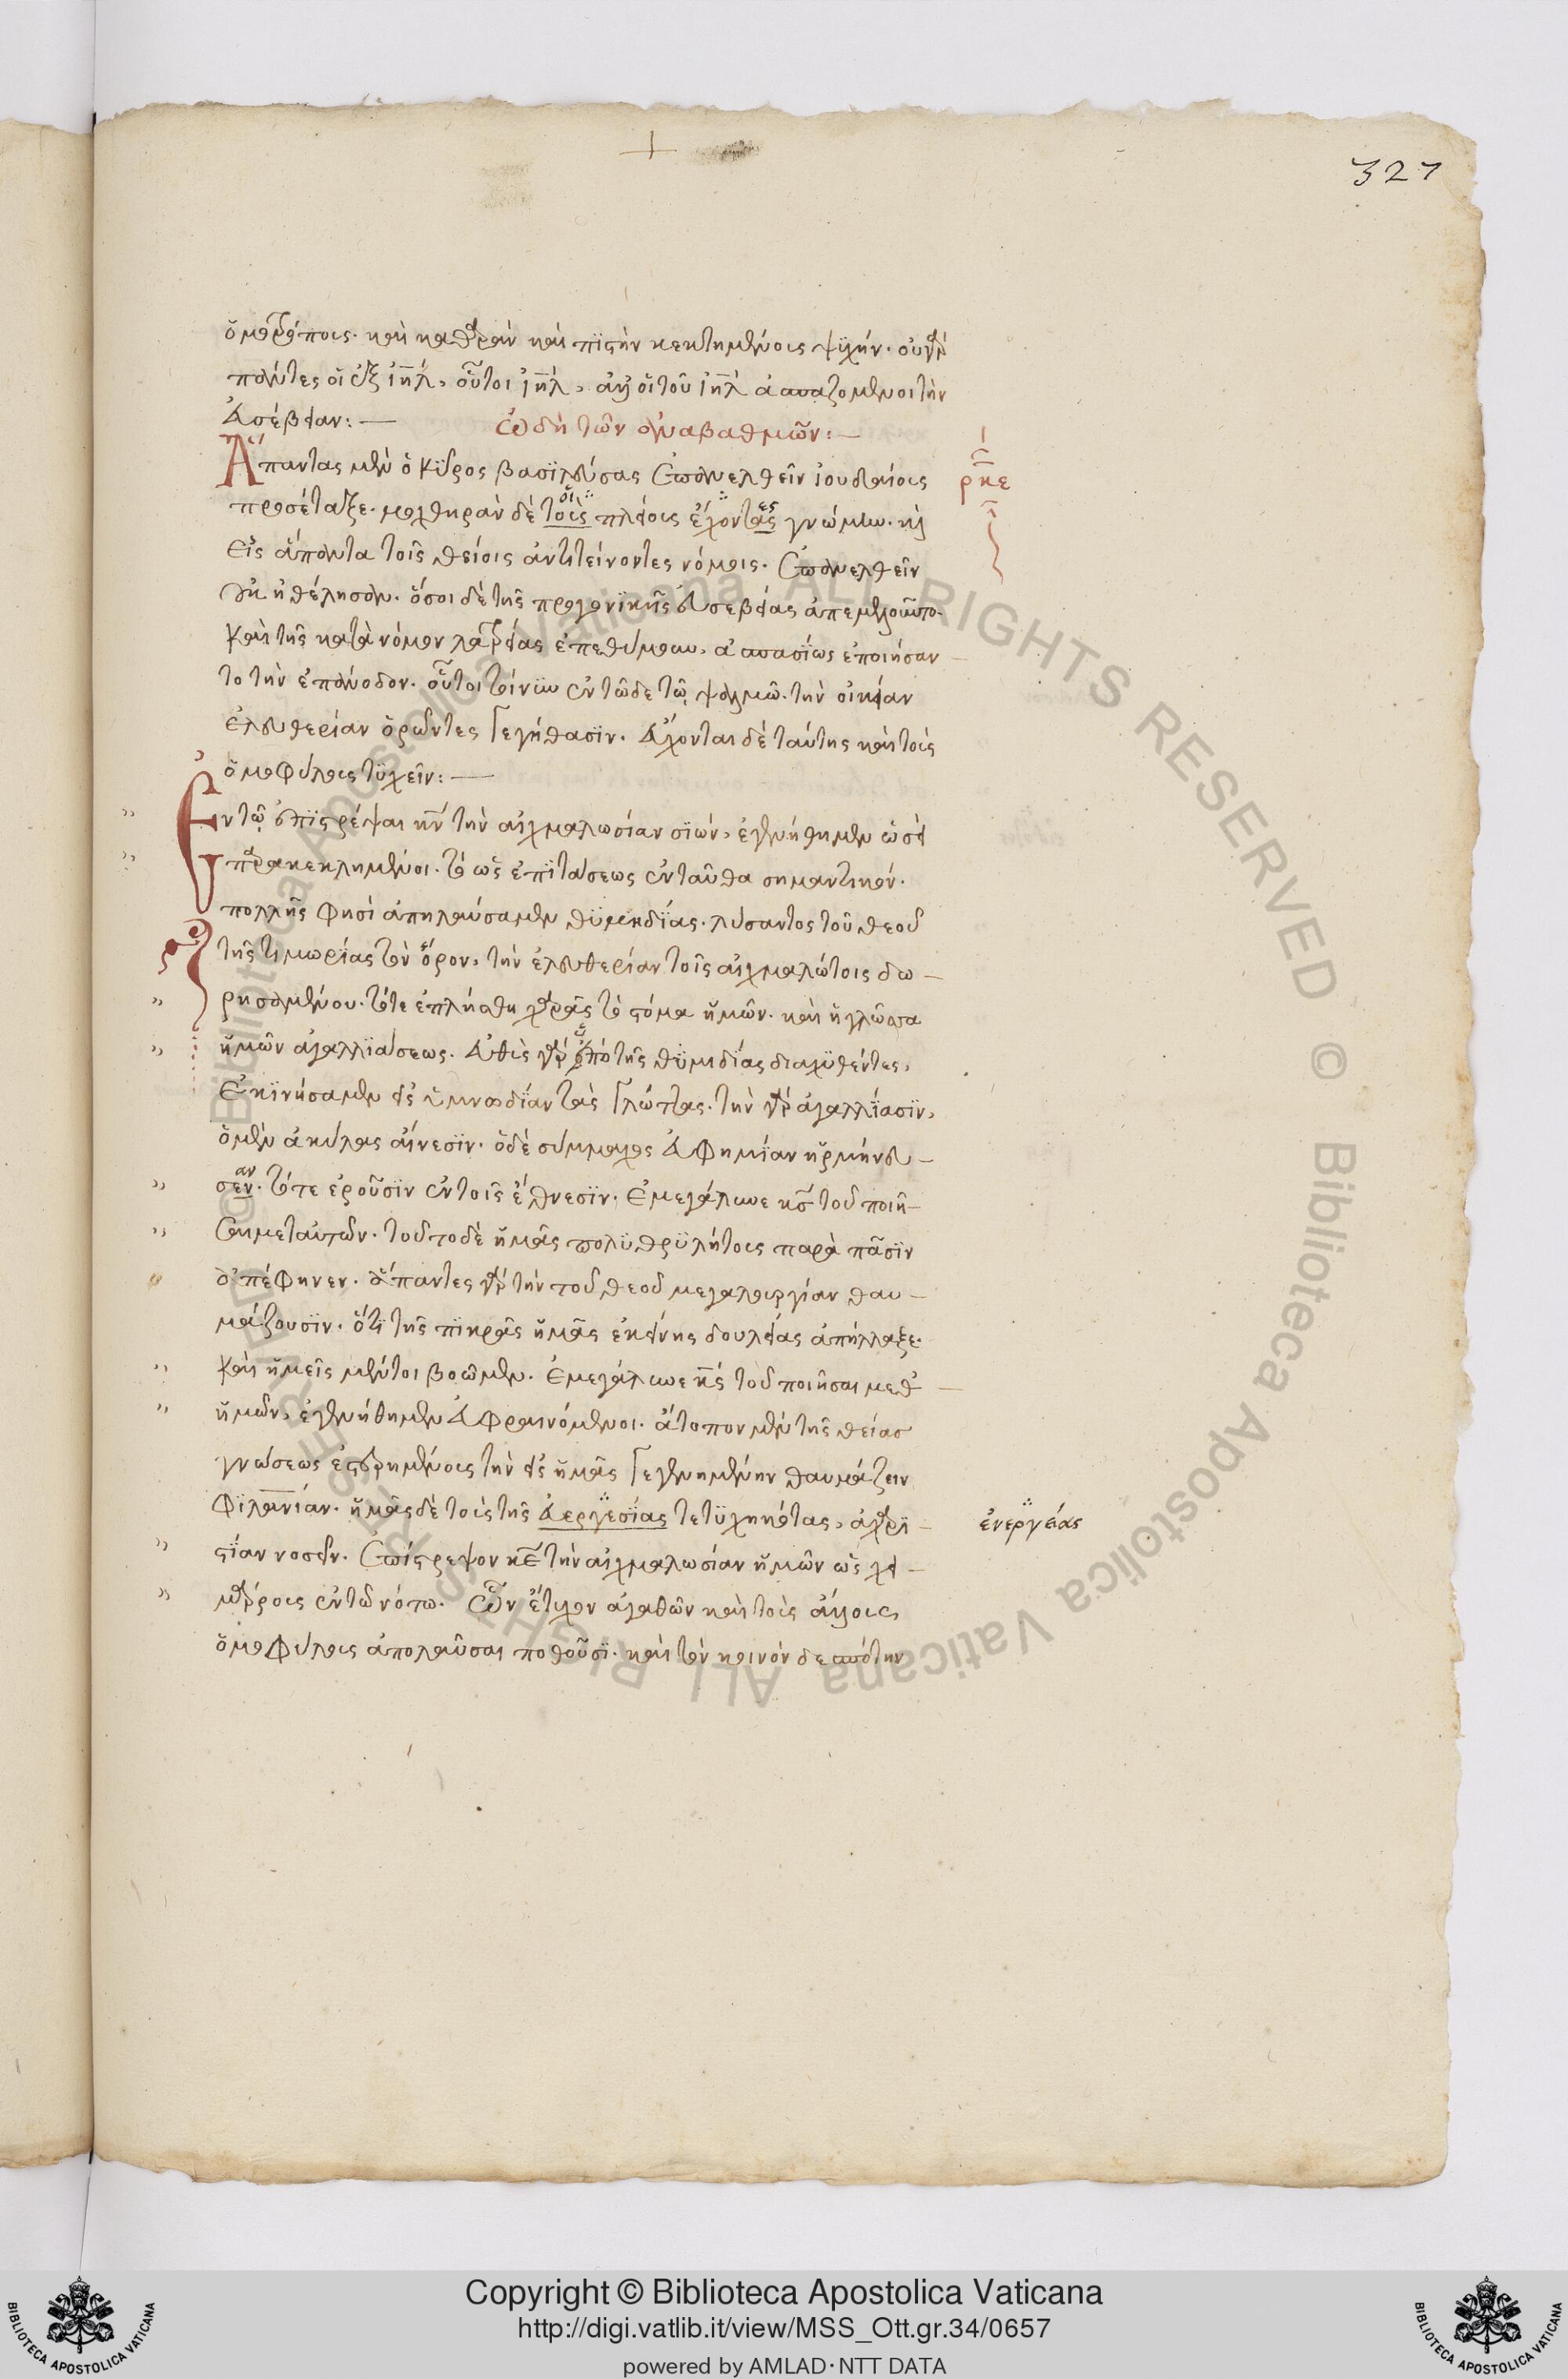 327
ὁμοτρόποις· καὶ καθαρὰν καὶ πιστὴν κεκτημένοις ψυχήν· οὐ γὰρ
πάντες οἱ ἐξ ἰηλ, οὗτοι ἰηλ, ἀλλ οἱ τοῦ ἰηλ ἀσπαζόμενοι τὴν
εὐσέβειαν:—
ὠδὴ τῶν ἀναβαθμῶν:—
ρκε
Ἅπαντας μὲν ὁ κῦρος βασιλεύσας ἐπανελθεῖν ἰουδαίοις
προσέταξε· μοχθηρὰν δὲ τοῖς πλείοις ἔχοντας γνώμην· κ
εἰς ἅπαντα τοῖς θείοις ἀντιτείνοντες νόμοις· ἐπανελθεῖν
οὐκ ἠθέλησαν· ὅσοι δὲ τῆς προγονικῆς εὐσεβείας ἀπεμέμνηντο·
καὶ τῆς κατὰ νόμον λατρείας ἐπεθύμουν, ἀσπασίως ἐποιήσαν
το τὴν ἐπάνοδον· οὗτοι τοίνυν ἐν τῶδε τῶ ψαλμῶ· τὴν οἰκείαν
ἐλευθερίαν ὁρῶντες γεγήθασιν· εὔχονται δὲ ταύτης καὶ τοὺς
ὁμοφύλους τυχεῖν:—
Ἐν τῶ ἐπιστρέψαι κν τὴν αἰχμαλωσίαν σιών, ἐγενήθημεν ὡσεὶ
παρακεκλημένοι· τὸ ὡς ἐπιτάσεως ἐνταῦθα σημαντικόν·
πολλῆς φησὶ ἀπηλαύσαμεν θυμηδίας· λύσαντος τοῦ θεοῦ
τῆς τιμωρίας τὸν ὅρον, τὴν ἐλευθερίαν τοῖς αἰχμαλώτοις δω
ρησαμένου· τότε ἐπλήσθη χαρᾶς τὸ στόμα ἡμῶν· καὶ ἡ γλῶσσα
ἡμῶν ἀγαλλιάσεως· εὐθὺς γὰρ ὑπὸ τῆς θυμιδίας διαχυθέντες,
ἐκινήσαμεν εἰς ὑμνωδίαν τὰς γλώττας· τὴν γὰρ ἀγαλλίασιν,
ὁ μὲν ἀκύλας αἴνεσιν· ὁ δὲ σύμμαχος εὐφημίαν ἡρμήνευ
σεν· τότε ἐροῦσιν ἐν τοῖς ἔθνεσιν· ἐμεγάλυνε κς τοῦ ποιῆ
σαι μετ αὐτῶν· τοῦτο δὲ ἡμᾶς πολυθρυλήτους παρὰ πᾶσιν
ἀπέφηνεν· ἅπαντες γὰρ τὴν τοῦ θεοῦ μεγαλουργίαν θαυ
μάζουσιν· ὅτι τῆς πικρᾶς ἡμᾶς ἐκείνης δουλείας ἀπήλλαξε·
καὶ ἡμεῖς μέντοι βοῶμεν· ἐμεγάλυνε κς τοῦ ποιῆσαι μεθ
ἡμῶν, ἐγενήθημεν εὐφραινόμενοι· ἄτοπον μὲν τῆς θείας
γνώσεως ἐστερημένοις τὴν εἰς ἡμᾶς γεγενημένην θαυμάζειν
φιλανίαν· ἡμᾶς δὲ τοὺς τῆς εὐεργεσίας τετυχηκότας, ἀχαρι
ἐνεργείας
στίαν νοσεῖν· ἐπίστρεψον κε τὴν αἰχμαλωσίαν ἡμῶν ὡς χει
μάρρους ἐν τῶ νότω· ὧν ἔτυχον ἀγαθῶν καὶ τοὺς ἄλλους
ὁμοφύλους ἀπολαῦσαι ποθοῦσι· καὶ τὸν κοινὸν δεσπότην
Copyright © Biblioteca Apostolica Vaticana
http://digi.vatlib.it/view/MSS_Ott.gr.34/0657
powered by AMLAD·NTT DATA
BIBLIOTECA APOSTOLICA VATICANA
BIBLIOTECA APOSTOLICA VATICANA
© Biblioteca Apostolica Vaticana ALL RIGHTS RESERVED © Biblioteca Apostolica Vaticana ALL RIGHTS RESERVED